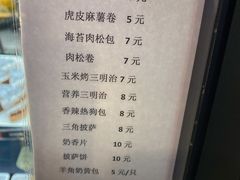 虎皮麻薯卷 5 元
海苔肉松包 7 元
肉松卷 7 元
玉米烤三明治 7 元
营养三明治 8 元
香辣热狗包 8 元
三角披萨 8 元
奶香片 10 元
披萨饼 10 元
羊角奶黄包 5 元/只